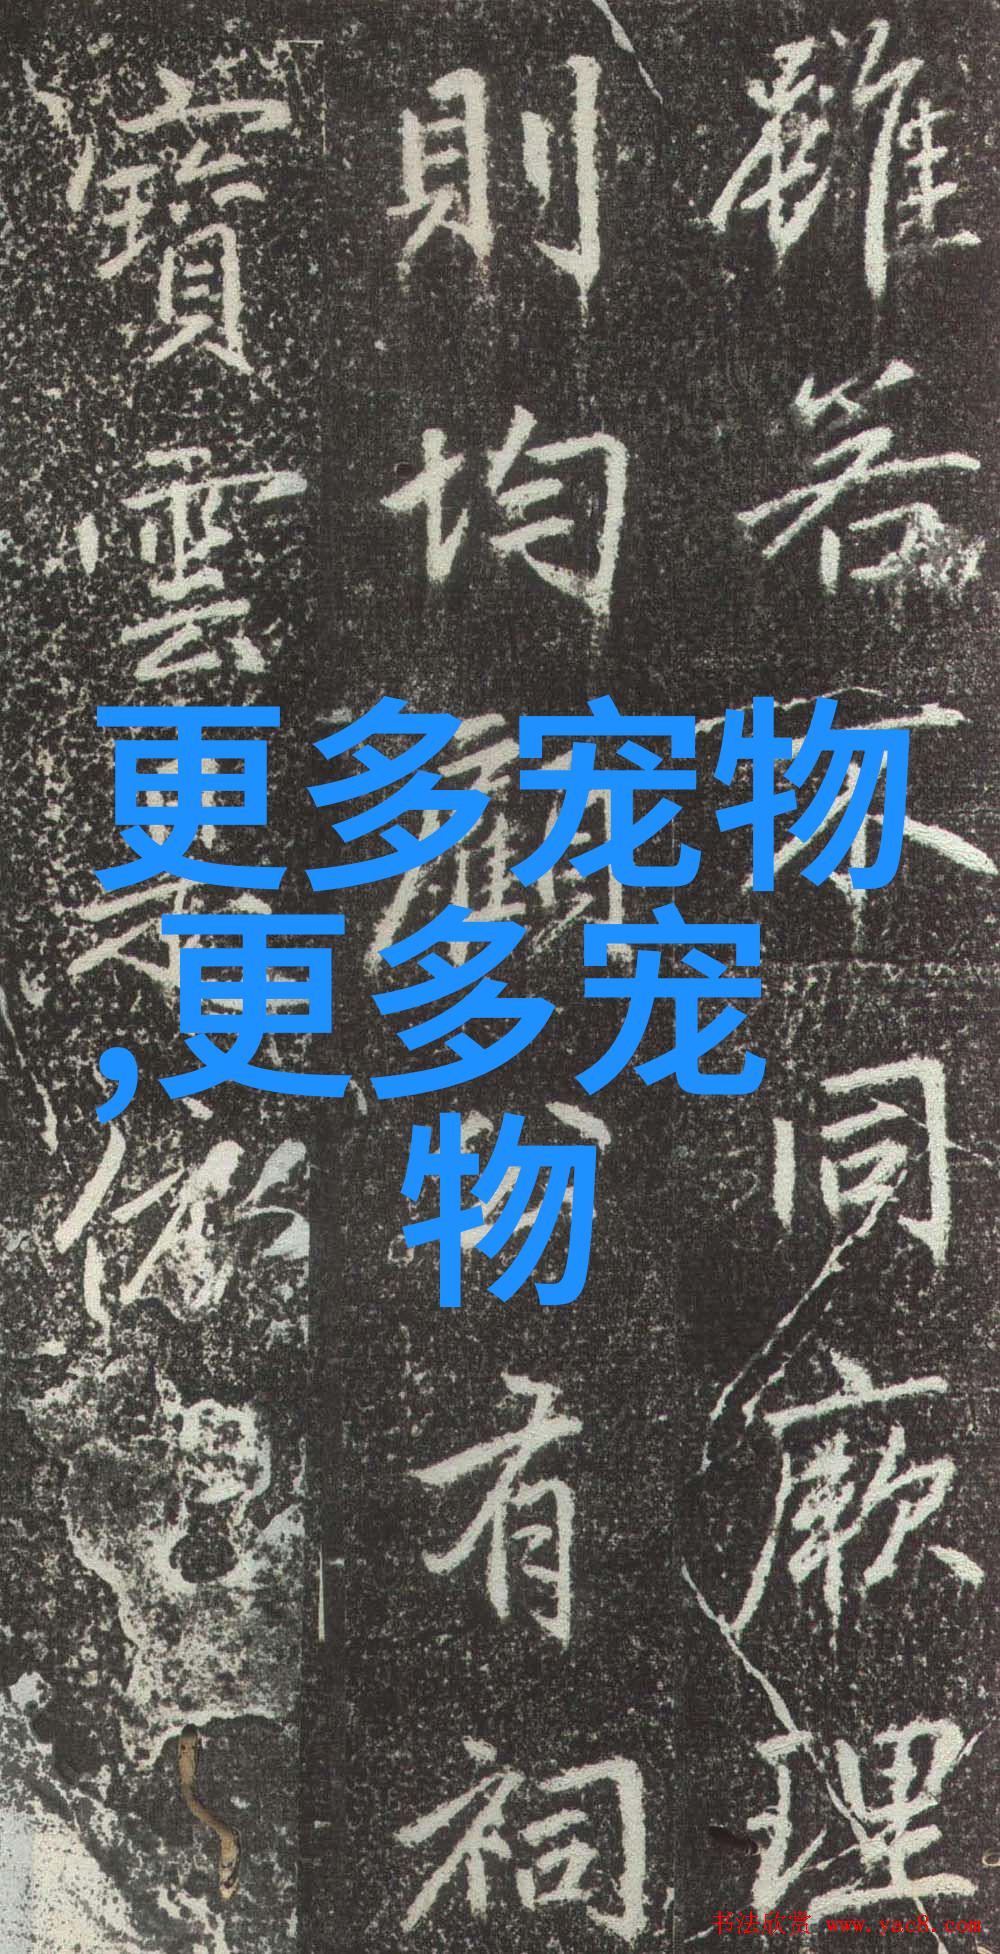 雖若不同厥理
則均顧 有祠
寶雲 
更多宠物
,更多宠
物
书法欣赏 www.yac8.com